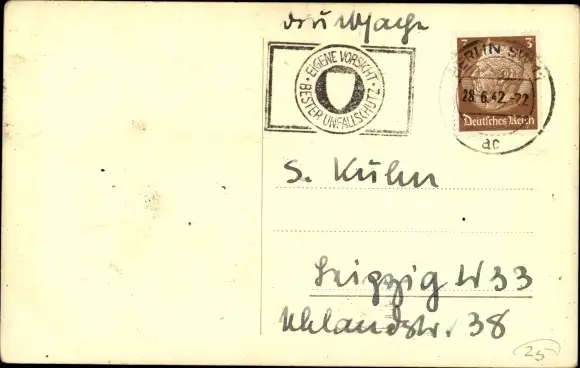 Drucksache
EIGENE VORSICHT
BESTER UNFALLSCHUTZ
BERLIN SW
28.6.42.-22
ac
3 3
Deutsches Reich
S. Kühn
Leipzig W 33
Uhlandstr. 38
25